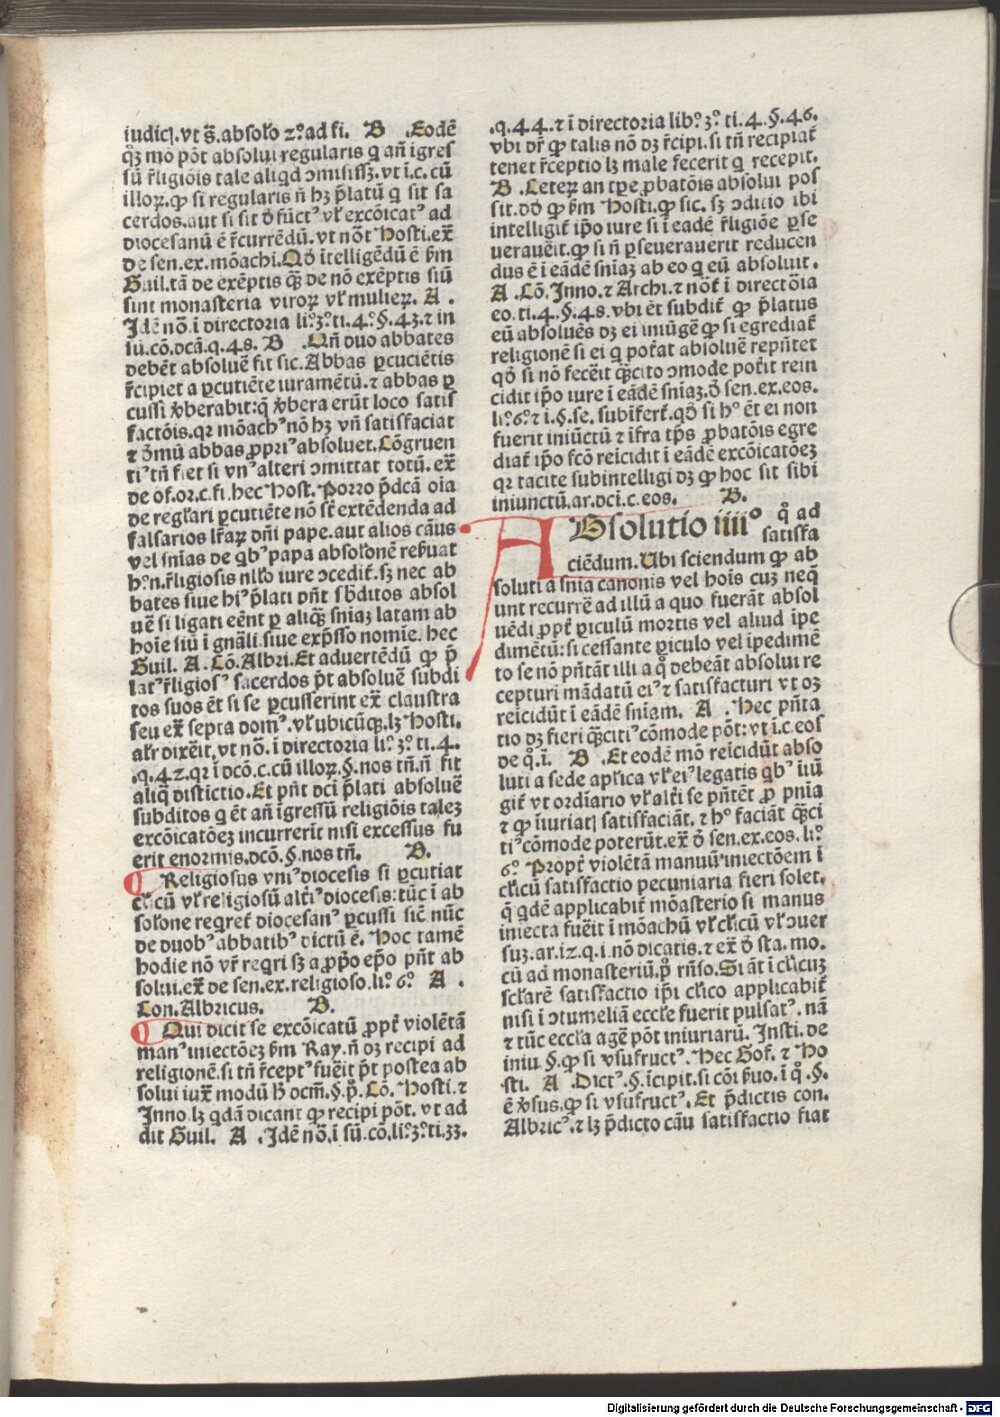 iudicꝭ.vt s̄.absolo 2°.ad fi. B .Eodē
qꝫ mō pōt absolui regularis q̄ añ īgres
sū r̄ligiōis tale aliqd ↄmisissꝫ.vt ī.c.cū
illoꝝ.ꝙ si regularis ñ hꝫ p̄latū q̄ sit sa
cerdos.aut si sit d̄fūctꝰ vl̓ excōicatꝰ ad
diocesanū ē r̄currēdū.vt nōt Hosti.ex̄
de sen.ex.mōachi.Qd̓ ītelligēdū ē ẜm
Guil.tā de exēptis qꝫ̄ de nō exēptis siū
sint monasteria viroꝝ vl̓ mulieꝝ. A .
Idē nō.ī directoria li°.3°.ti.4°.§.43.⁊ in
sū.cō.dcā.q.48. B .Qn̄ duo abbates
debēt absoluē fit sic.Abbas ꝑcuciētis
r̄cipiet a ꝑcutiēte iuramētū.⁊ abbas ꝑ
cussi v̓berabit:q̄ v̓bera erūt loco satis
factōis.qꝛ mōachꝰ nō hꝫ vñ satisfaciat
⁊ d̓mū abbas ꝓpriꝰ absoluet.Cōgruen
tiꝰ tñ fiet si vnꝰ alteri ↄmittat totū.ex̄
de of.or.c.fi.hec Host.Porro p̄dcā oīa
de reglari ꝑcutiēte nō st̄ extēdenda ad
falsarios lr̄aꝝ dñi pape.aut alios cāus
vel snīas de qbꝰ papa absolōnē reẜuat
hºn.r̄ligiosis nllo iure ↄcedit̄.sꝫ nec ab
bates siue hiꝰ p̄lati pn̄t sb̓ditos absol
uē si ligati eēnt ꝑ aliqꝫ̄ snīaꝫ latam ab
hoīe siū ī gnāli.siue exp̄sso nomīe. hec
Guil. A .Cō.Albri.Et aduertēdū ꝙ p̄
latꝰ r̄ligiosꝰ sacerdos p̄t absoluē subdi
tos suos ēt si se ꝑcusserint ex̄ claustra
seu ex̄ septa domꝰ.vl̓ ubicūqꝫ.lꝫ Hosti.
alr̄ dixēit,vt nō.ī directoria li°.3°.ti.4.
.q.42.qꝛ ī dcō.c.cū illoꝝ.§.nos tñ.ñ fit
aliq̄ distictio.Et pn̄t dcī p̄lati absoluē
subditos q̄ ēt añ īgressū religiōis taleꝫ
excōicatōeꝫ incurrerīt nisi excessus fu
erit enormis.dcō.§.nos tñ. B.
Religiosus vniꝰ diocesis si ꝑcutiat
cl̓icū vl̓ religiosū alt̓iꝰ diocesis:tūc ī ab
solōne reqret̄ diocesanꝰ ꝑcussi sic̄ nūc
de duobꝰ abbatibꝰ dictū ē. Hoc tamē
hodie nō vr̄ reqri sꝫ a ꝓp̓o ep̄o pn̄t ab
solui.ex̄ de sen.ex.religioso.li°.6°. A .
Con.Albricus. B.
Qui dicit se excōicatū ꝓpt̄ violētā
manꝰ iniectōeꝫ ẜm Ray.ñ dꝫ recipi ad
religionē.si tñ r̄ceptꝰ fuēit p̄t postea ab
solui iux̄ modū h̄ ocm̄.§.p°.Cō. Hosti.⁊
Inno.lꝫ qdā dicant ꝙ recipi pōt. vt ad
dit Guil. A .Idē nō.ī sū.cō.li°.3°.ti.33.
.q.44.⁊ ī directoria lib°.3°.ti.4.§.46.
vbi dr̄ ꝙ talis nō dꝫ r̄cipi.si tñ recipiat̄
tenet r̄ceptio lꝫ male fecerit q̄ recepit.
B .Ceteꝝ an tꝑe ꝓbatōis absolui pos
sit.dd̓ ꝙ ẜm Hosti.ꝙ sic. sꝫ ↄditio ibi
intelligit̄ ip̄o iure si ī eadē r̄ligiōe ꝑse
uerauēit.ꝙ si ñ ꝑseuerauerit reducen
dus ē ī eādē snīaꝫ ab eo q̄ eū absoluit.
A .Cō.Inno.⁊ Archi.⁊ nōt̄ ī directōia
eo.ti.4.§.48.vbi ēt subdit̄ ꝙ p̄latus
eū absoluēs dꝫ ei iniūgē ꝙ si egrediat̄
religionē si ei q̄ pot̓at absoluē rep̄ntet
qd̓ si nō fecēit qꝫ̄cito ↄmode pot̓it rein
cidit ip̄o iure ī eādē snīaꝫ.d̓ sen.ex.eos.
li°.6°.⁊ ī.§.se. subīfert̄.qd̓ si h° ēt ei non
fuerit iniūctū ⁊ īfra tp̄s ꝓbatōis egre
diat̄ ip̄o fcō reīcidit ī eādē excōicatōeꝫ
qꝛ tacite subintelligi dꝫ ꝙ hoc sit sibi
iniunctū.ar.dcī.c.eos. B.
ABsolutio iiii° q̄ ad
satisfa
ciēdum.Ubi sciendum ꝙ ab
soluti a snīa canonis vel hoīs cuꝫ neq̄
unt recurrē ad illū a quo fuerāt absol
uēdi ꝓpt̄ ꝑiculū mortis vel aliud īpe
dimētū:si cessante ꝑiculo vel īpedimē
to se nō pn̄tāt illi a q̄ debeāt absolui re
cepturi mādatū eiꝰ ⁊ satisfacturi vt oꝫ
reīcidūt ī eādē snīam. A .Hec pn̄ta
tio dꝫ fieri qꝫ̄citiꝰ cōmode pōt: vt ī.c.eos
de q°.ī. B .Et eodē mō reīcidūt abso
luti a sede aplīca vl̓ eiꝰ legatis qbꝰ īiū
git̄ vt ordīario vl̓ alt̓i se pn̄tēt ꝓ pn̄ia
⁊ ꝙ īiuriatꝭ satisfaciāt. ⁊ h° faciāt qꝫ̄ci
tiꝰ cōmode poterūt.ex̄ d̓ sen.ex.eos.li°.
6°. Propt̄ violētā manuū iniectōem ī
cl̓icū satisfactio pecuniaria fieri solet,
q̄ qdē applicabit̄ mōasterio si manus
iniecta fuēit ī mōachū vl̓ cl̓icū vl̓ ↄuer
suꝫ.ar.12.q.1.nō dicatis.⁊ ex̄ d̓ sta.mo.
cū ad monasteriū.p° rn̄so.Si āt ī cl̓icuꝫ
sclarē satisfactio ip̄i cl̓ico applicabit̄
nisi ī ↄtumeliā eccl̓e fuerit pulsatꝰ. nā
⁊ tūc eccl̓a agē pōt iniuriarū. Insti. de
iniu.§.ꝙ si vsufructꝰ. Hec Gof. ⁊ Ho
sti. A .Dictꝰ.§.īcipit.si cōi ẜuo.ī q°.§.
ē v̓sus.ꝙ si vsufructꝰ. Et p̄dictis con.
Albricꝰ.⁊ lꝫ p̄dicto cāu satisfactio fiat
Digitalisierung gefördert durch die Deutsche Forschungsgemeinschaft - DFG